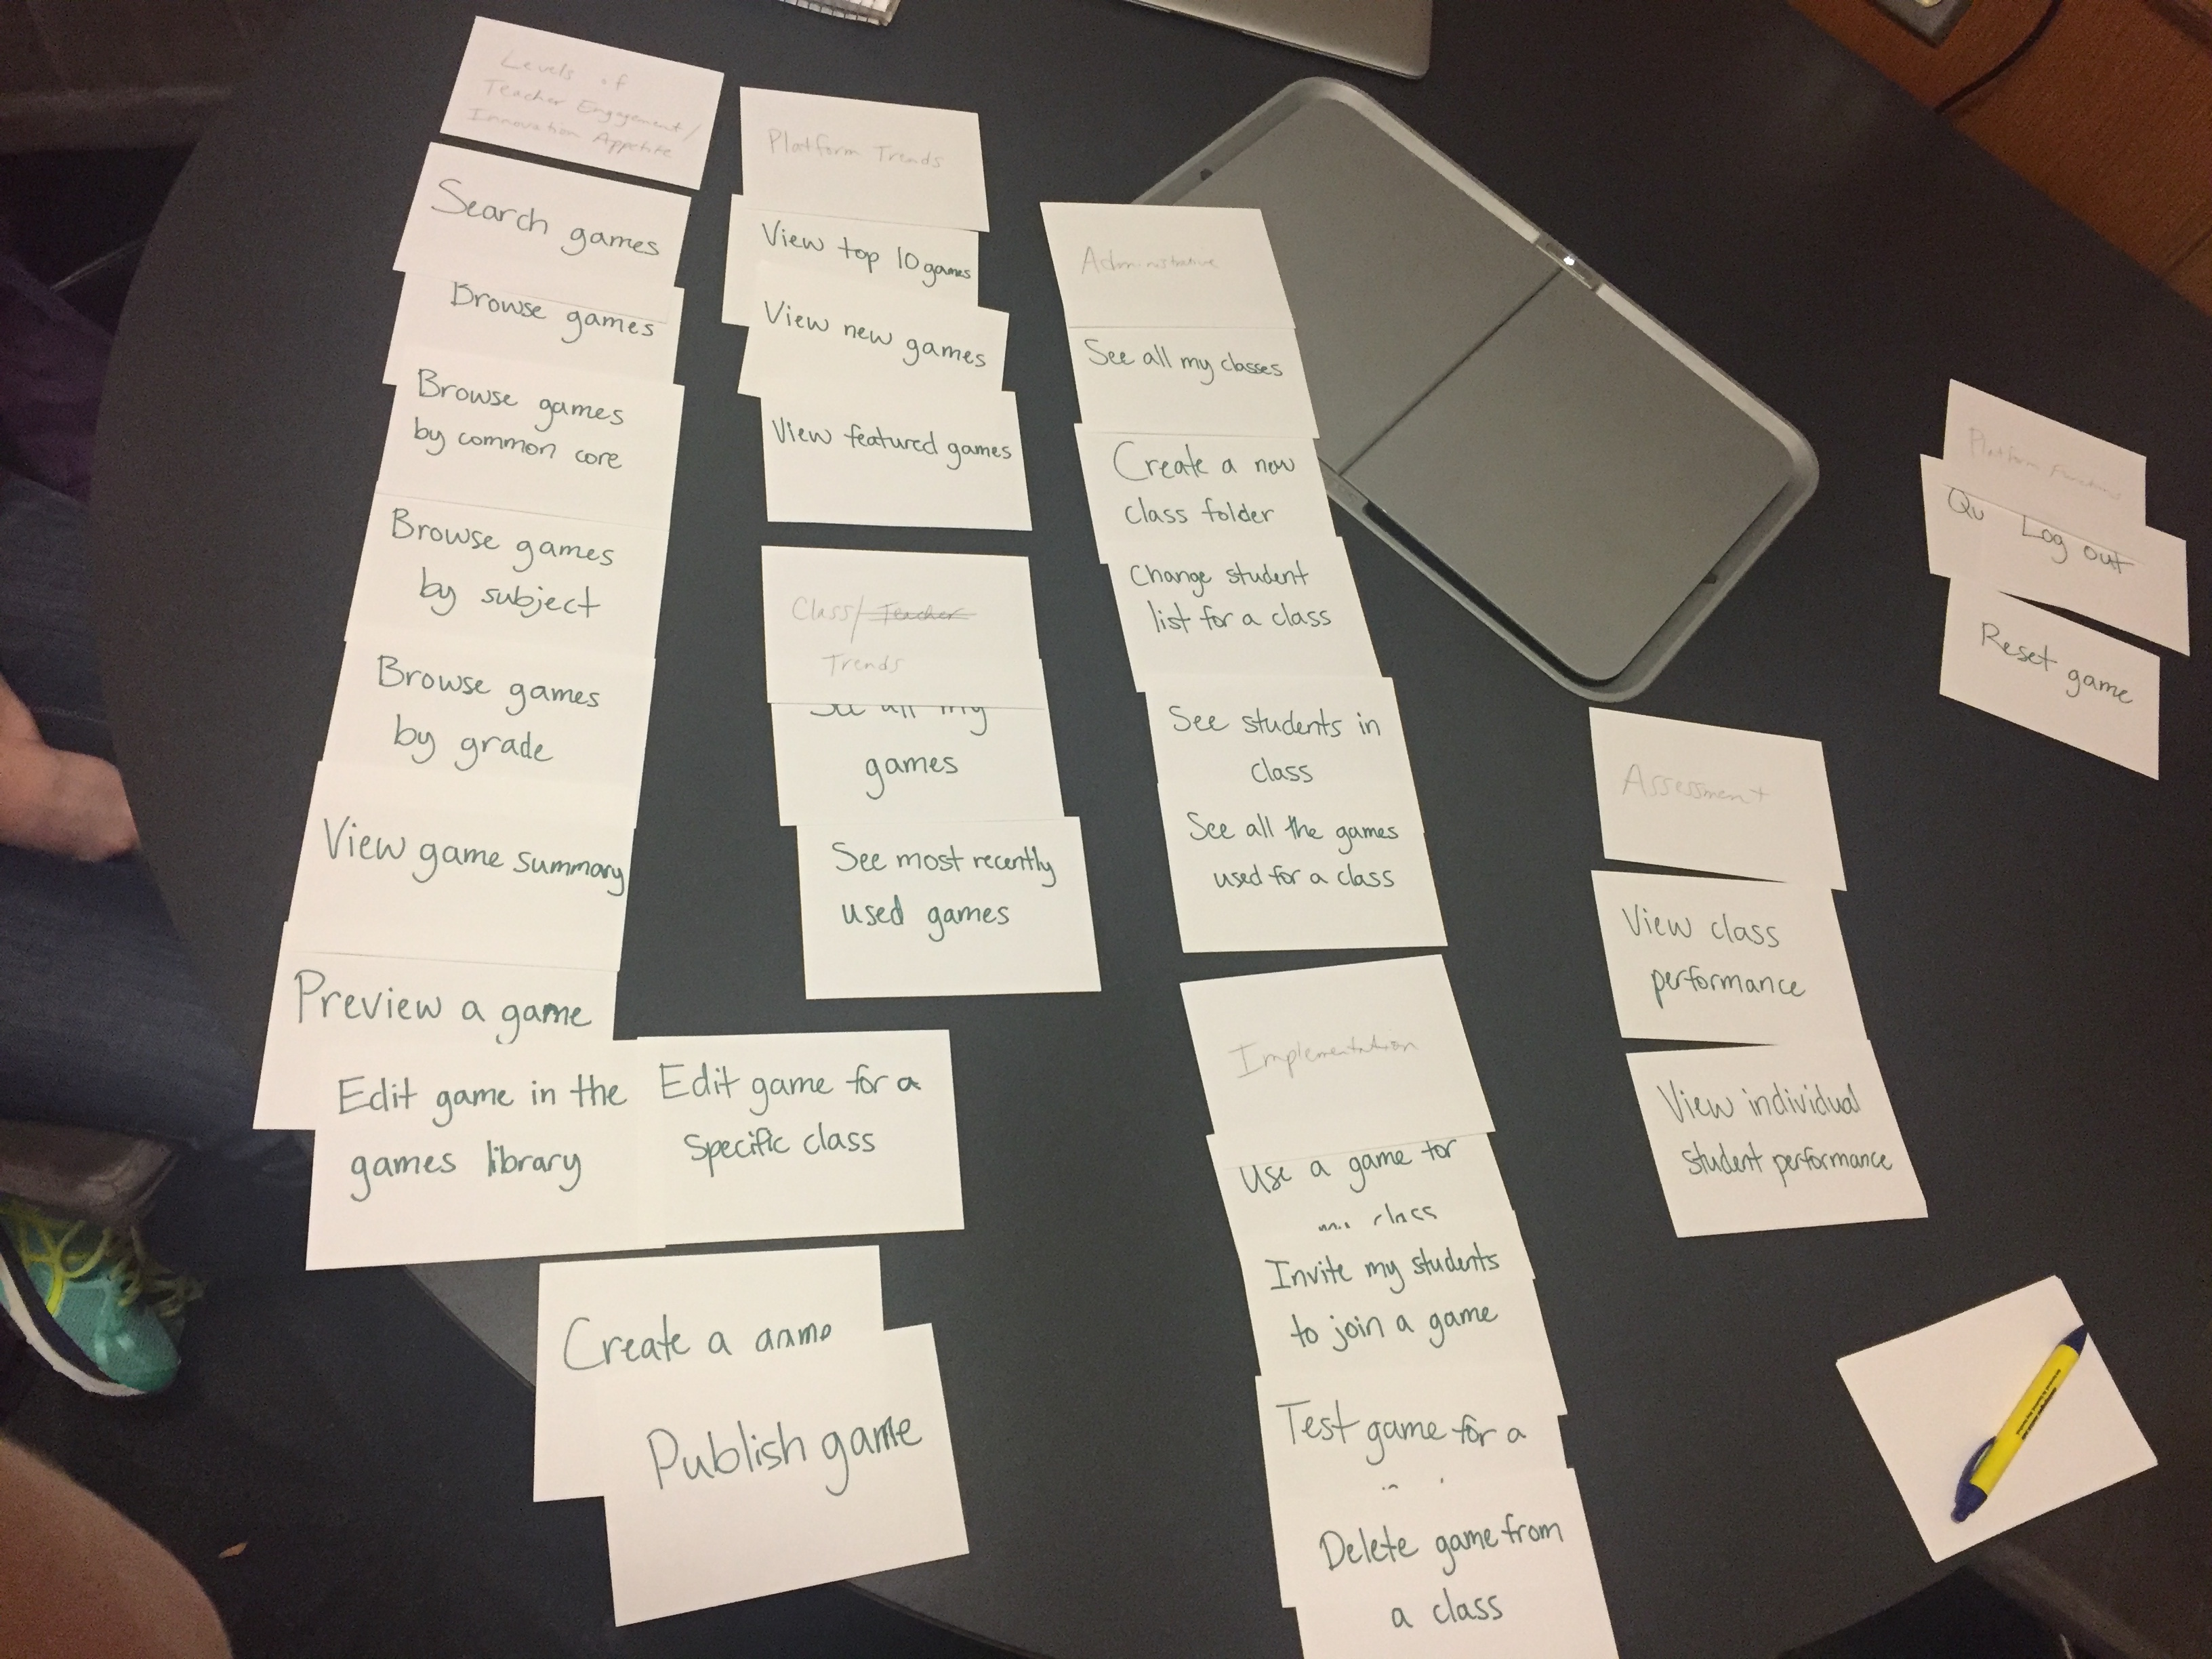 Levels of
Teacher Engagement/
Innovation Appetite
Search games
Browse games
Browse games
by common core
Browse games
by subject
Browse games
by grade
View game summary
Preview a game
Edit game in the
games library
Edit game for a
specific class
Create a game
Publish game
Platform Trends
View top 10 games
View new games
View featured games
Class/Teacher
Trends
See all my
games
See most recently
used games
Administrative
See all my classes
Create a new
class folder
Change student
list for a class
See students in
class
See all the games
used for a class
Implementation
Use a game for
my class
Invite my students
to join a game
Test game for a
Delete game from
a class
Assessment
View class
performance
View individual
student performance
Platform Functions
Qu
Log out
Reset game